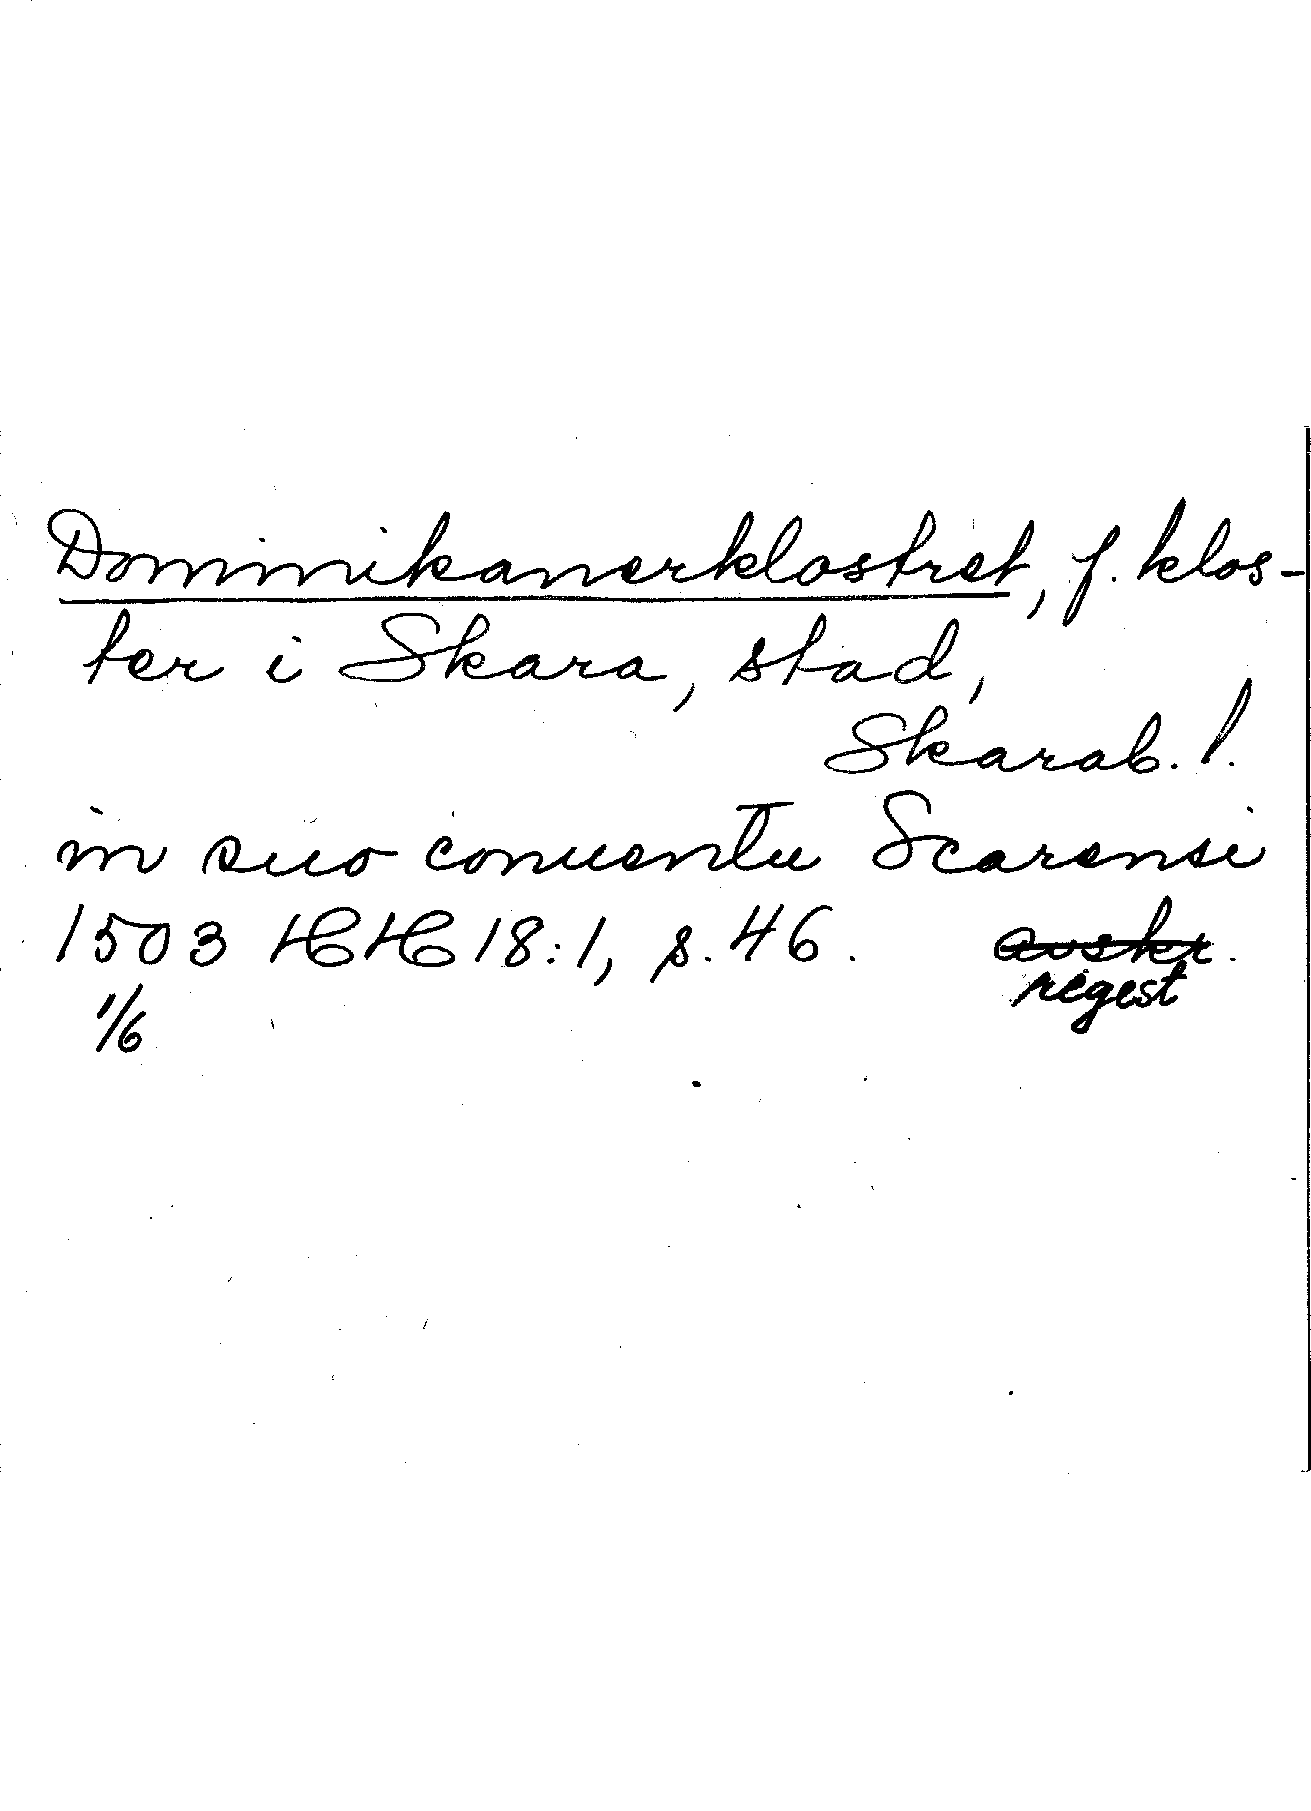 Dominikanerklostret, f. klos-
ter i Skara, stad,
Skarab. l.
in suo conuentu Scarensi
1503 HH 18:1, s. 46. avskr.
regest
1/6